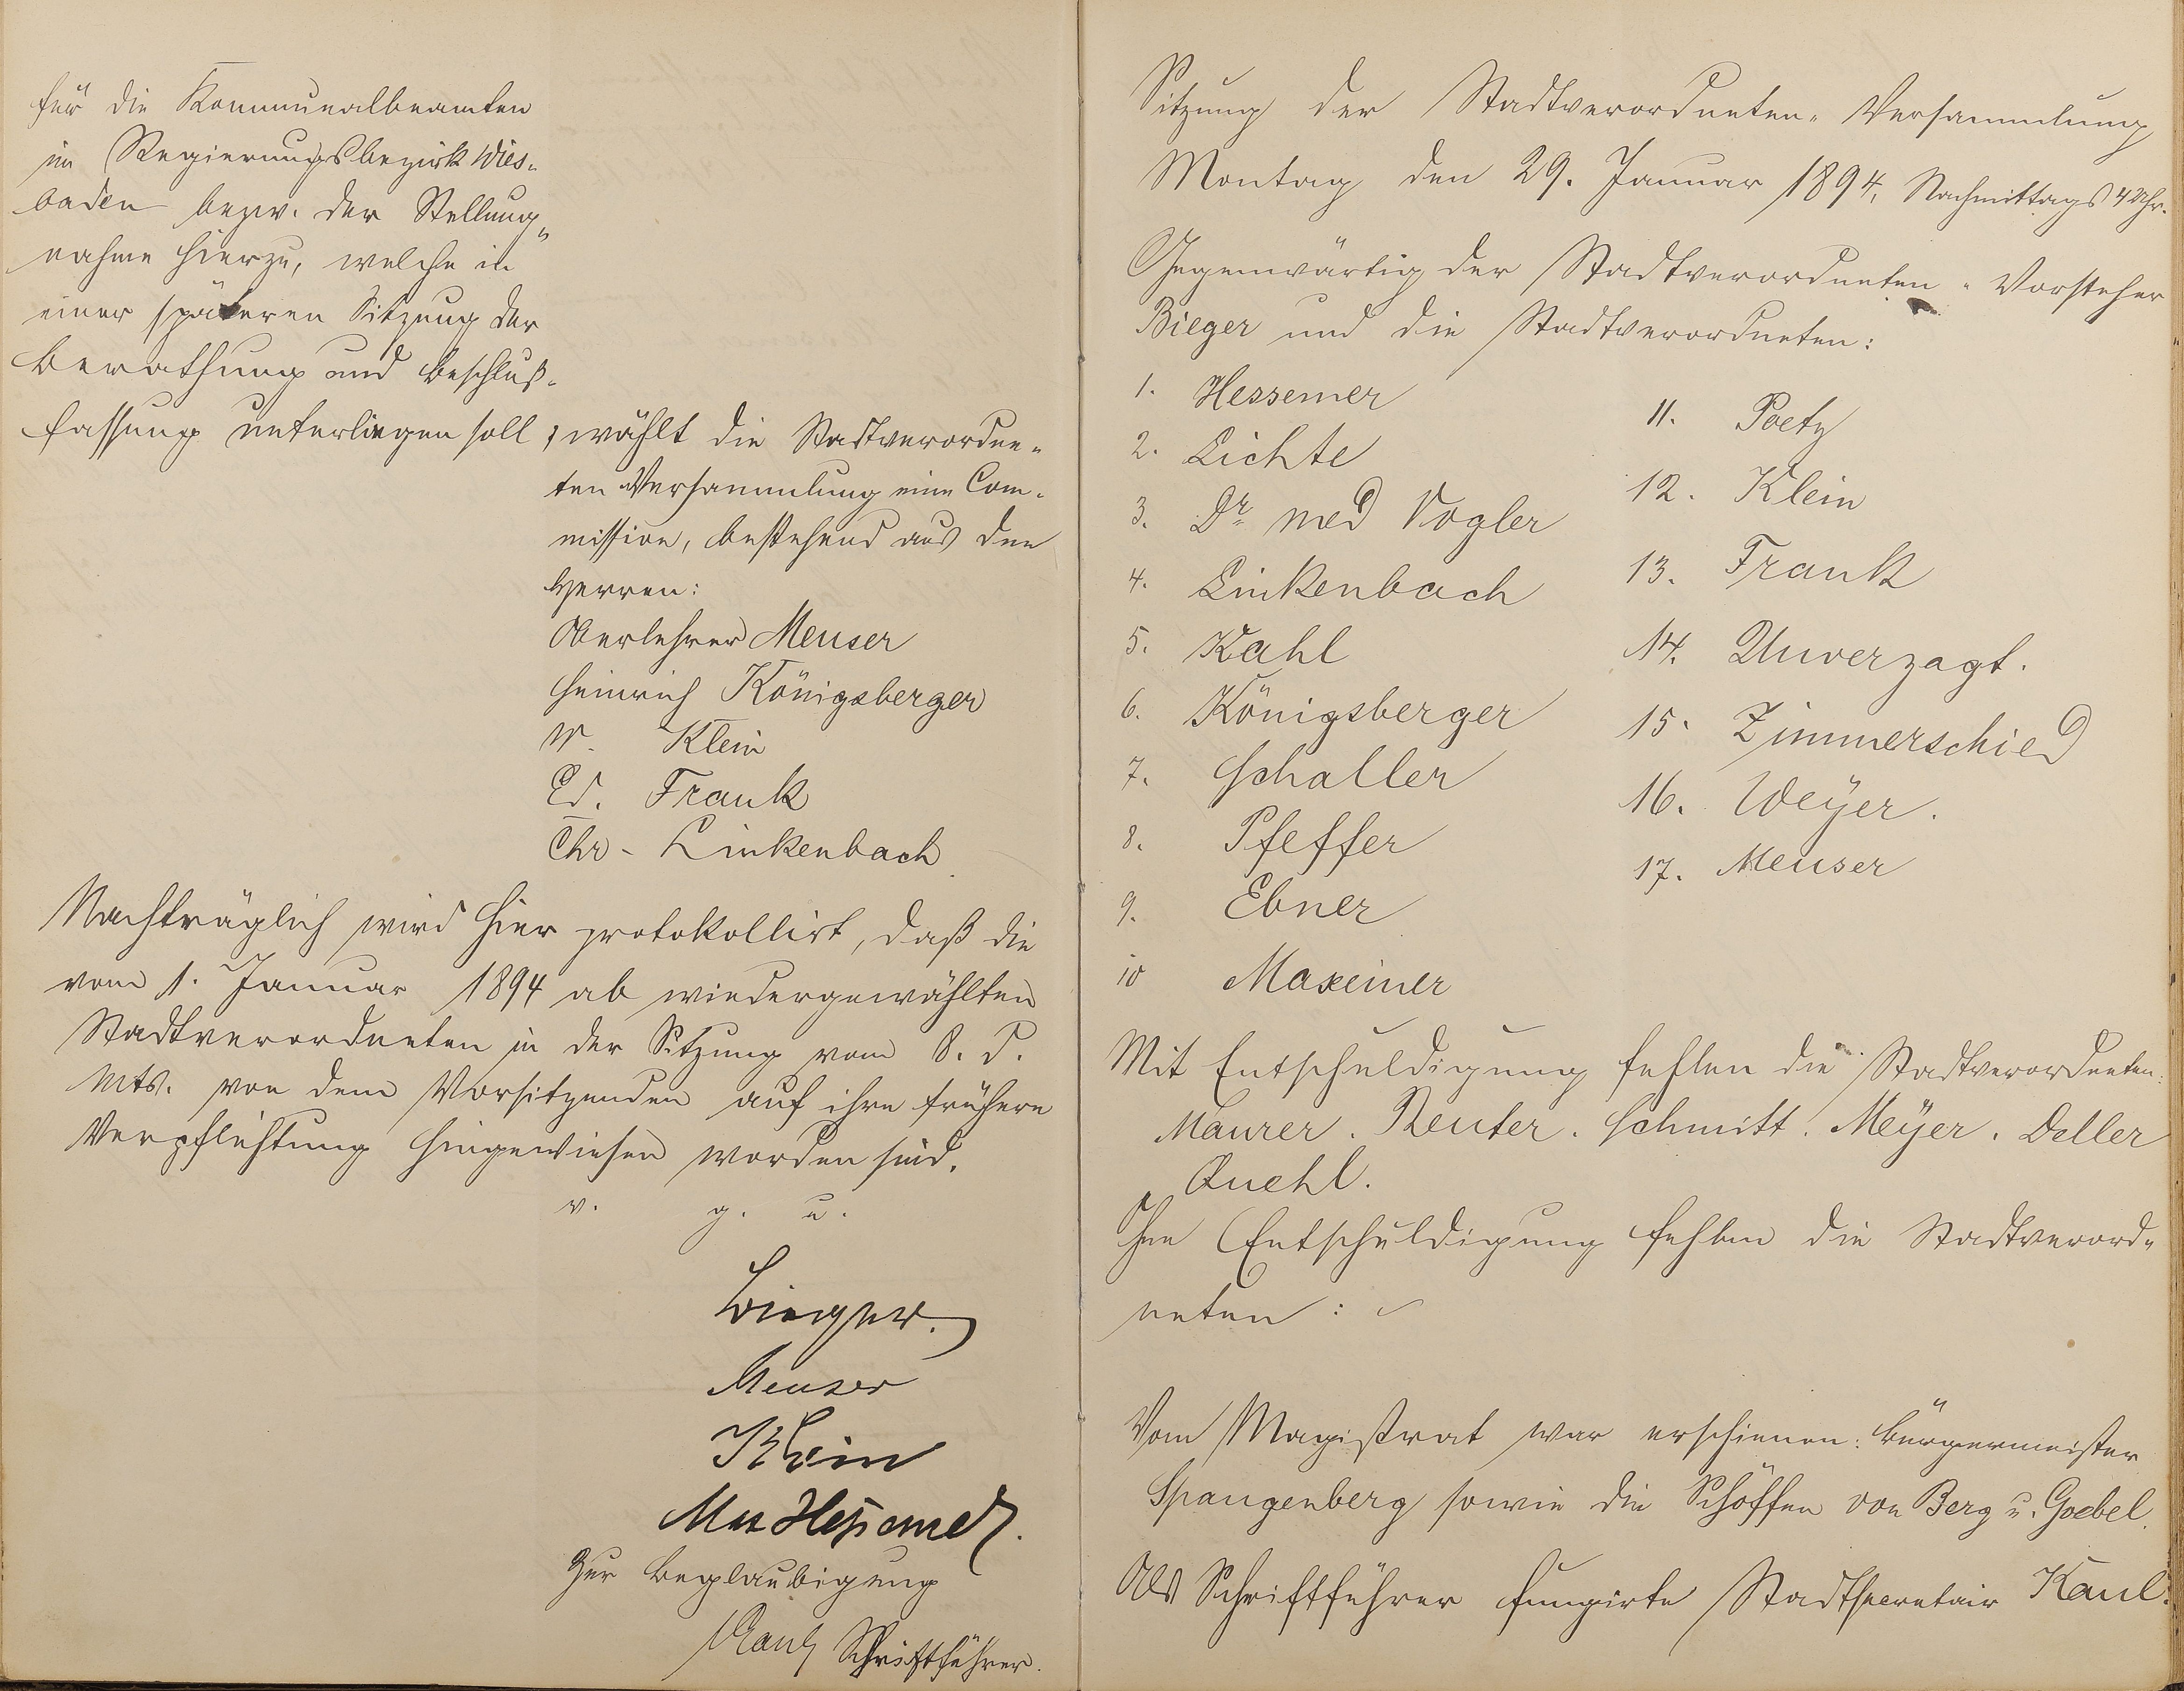 für die Kommunalbeamten
im Regierungsbezirk Wies-
baden bezw. der Stellung-
nahme hierzu, welche in
einer späteren Sitzung der
Berathung und Beschluß-
fassung unterliegen soll, wählt die Stadtverordne-
ten Versammlung eine Com-
mission, bestehend aus den
Herren:
Oberlehrer Meuser
Heinrich Königsberger
W. Klein
Ed. Frank
Chr. Linkenbach
Nachträglich wird hier protokollirt, daß die
vom 1. Januar 1894 ab wiedergewählten
Stadtverordneten in der Sitzung vom 8. d.
Mts. von dem Vorsitzenden auf ihre frühere
Verpflichtung hingewiesen worden sind.
v. g. u.
Bieger.
Meuser
Klein
Max Hessemer.
Zur Beglaubigung
Kaul Schriftführer.
Sitzung der Stadtverordneten-Versammlung
Montag den 29. Januar 1894, Nachmittags 4 Uhr.
Gegenwärtig der Stadtverordneten-Vorsteher
Bieger und die Stadtverordneten:
1. Hessemer
2. Lichte
3. Dr med Vogler
4. Linkenbach
5. Kahl
6. Königsberger
7. Schaller
8. Pfeffer
9. Ebner
10 Maxeiner
11. Poetz
12. Klein
13. Frank
14. Unverzagt.
15. Zimmerschied
16. Weÿer.
17. Meuser
Mit Entschuldigung fehlen die Stadtverordneten:
Maurer. Reuter. Schmitt. Meÿer. Deller
Quehl.
Ohne Entschuldigung fehlen die Stadtverord-
neten:
Vom Magistrat war erschienen: Bürgermeister
Spangenberg sowie die Schöffen von Berg u. Goebel.
Als Schriftführer fungirte Stadtsecretair Kaul.